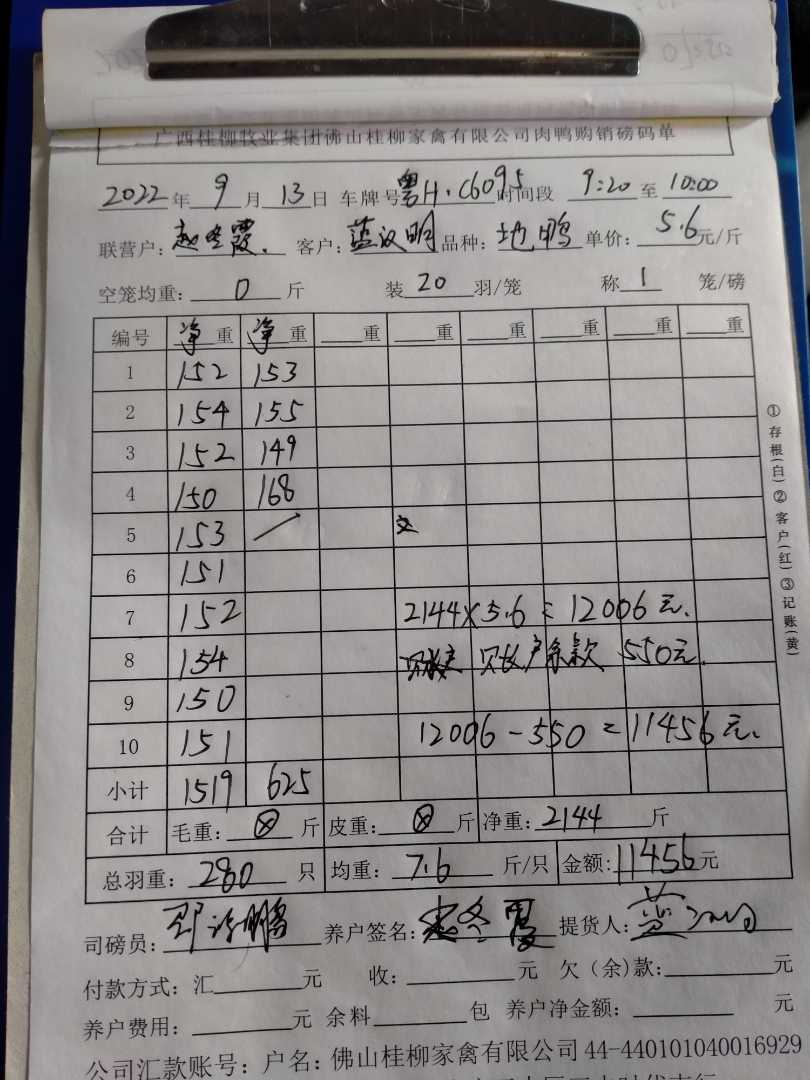 广西桂柳牧业集团佛山桂柳家禽有限公司肉鸭购销磅码单
2022年 9月 13日 车牌号粤H·C6095时间段 9:20至 10:00
联营户:赵冬霞. 客户:蓝汉明 品种:地鸭 单价:5.6元/斤
空笼均重: 0 斤 装 20 羽/笼 称 1 笼/磅
编号 净重 净重 重 重 重 重 重 重
1 152 153
2 154 155
3 152 149
4 150 168
5 153 /
6 151
7 152 2144×5.6=12006元.
8 154 余款 550元.
9 150
10 151 12006-550=11456元.
小计 1519 625
合计 毛重: ⊗ 斤 皮重: ⊗ 斤 净重: 2144 斤
总羽重: 280 只 均重: 7.6 斤/只 金额:11456元
司磅员: 养户签名: 冬霞 提货人: 蓝
付款方式:汇 元 收: 元 欠(余)款: 元
养户费用: 元 余料 包 养户净金额: 元
公司汇款账号:户名:佛山桂柳家禽有限公司 44-440101040016929
①存根(白)②客户(红)③记账(黄)